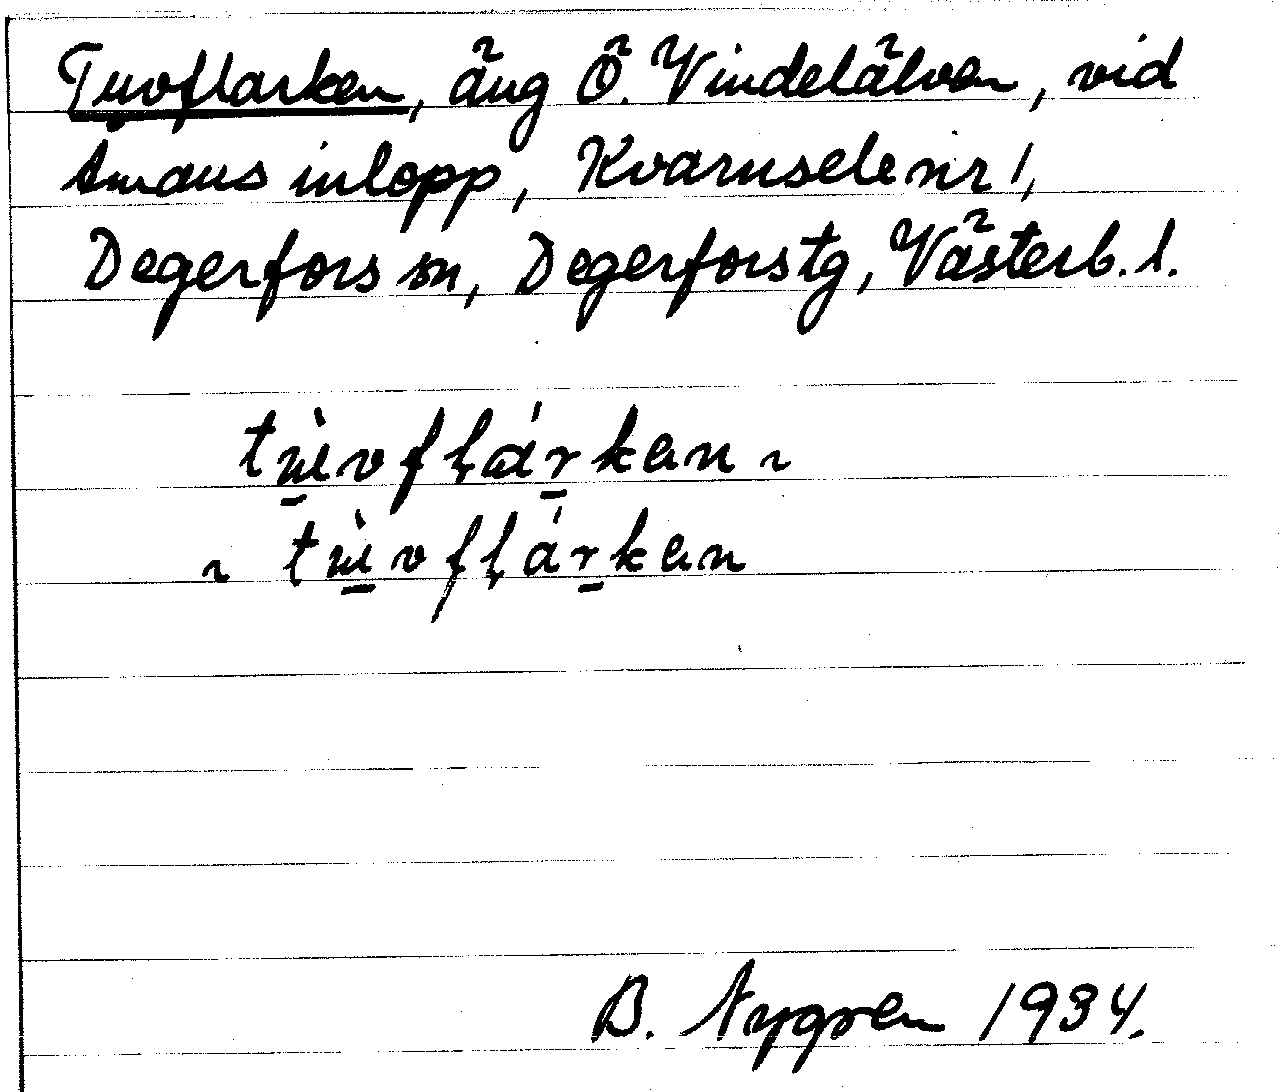 Tuvflarken, äng Ö. Vindelälven, vid
Amans inlopp, Kvarnsele nr 1,
Degerfors sn, Degerfors tg, Västerb. l.
tɯ̀vflárkan ~
~ tɯ̀vflárkan
B. Nygren 1934.